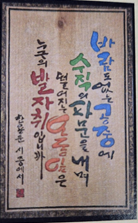 바람도 없는 공중에
수직의 파문을 내며
떨어지는 오동잎은
누구의 발자취입니까
한용운 시 중에서